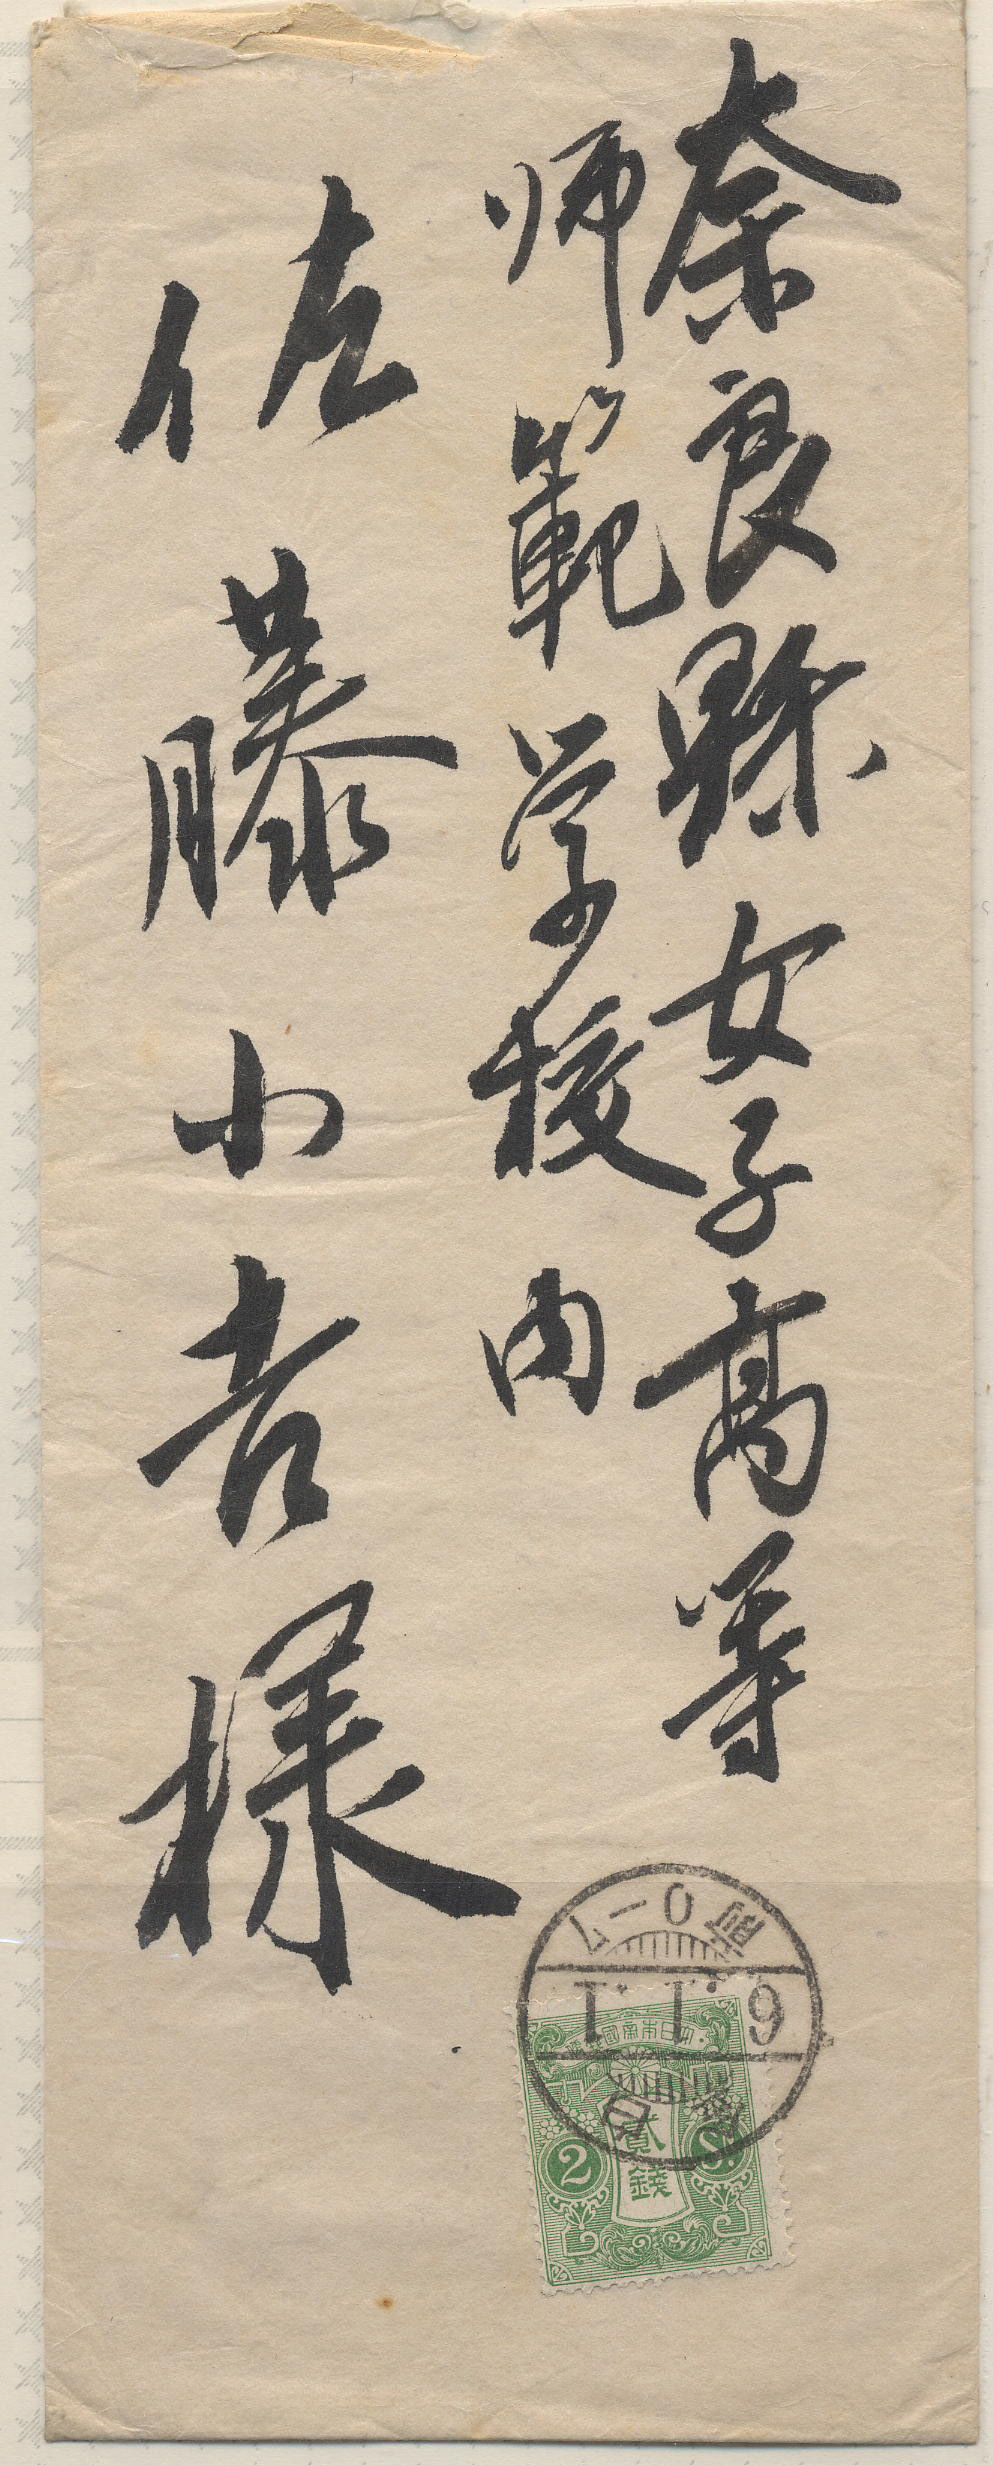 奈良縣女子高等
師範学校内
佐藤小吉様
6.1.1
前0-7
大日本帝國郵便
貳錢
2
S.